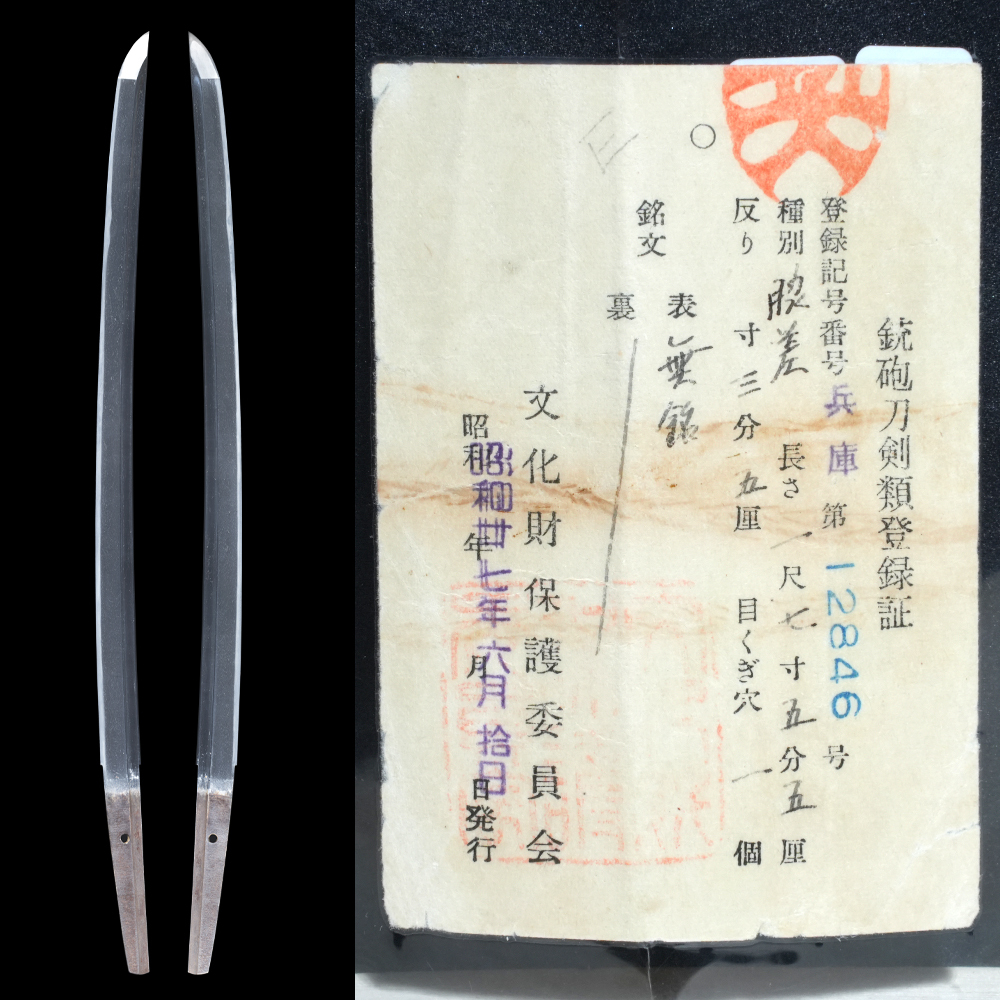 銃砲刀剣類登録証
登録記号番号 兵庫 第 12846 号
種別 脇差 長さ 一尺七寸五分五厘
反り 寸三分五厘 目くぎ穴 一個
銘文 表 無銘
裏
文化財保護委員会
昭和 年 月 日発行
昭和廿七年六月拾日